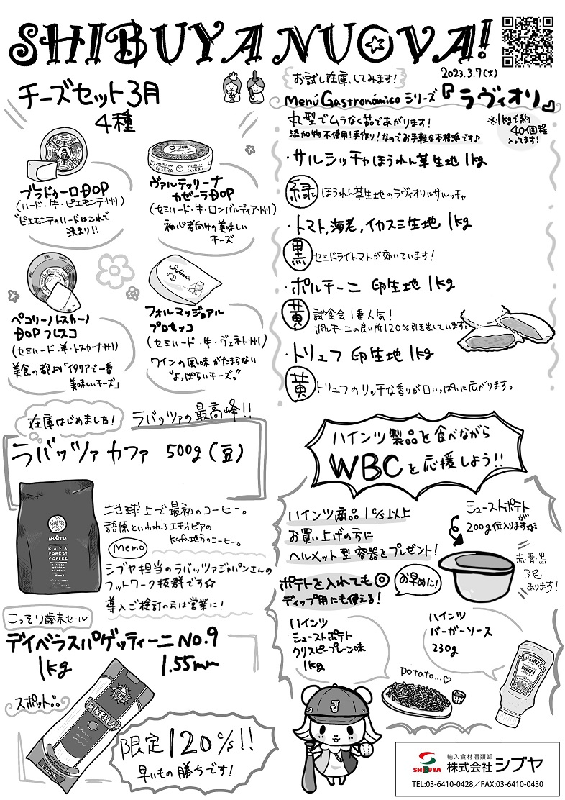 SHIBUYA NUOVA!
2023.3.7(火)
チーズセット3月
4種
ブラドゥーロDOP
(ハード・牛・ピエモンテ州)
ヴァルテッリーナ
カゼーラDOP
(セミハード・牛・ロンバルディア州)
初心者向けの美味しい
チーズ
ペコリーノトスカーノ
DOPフレスコ
(セミハード・羊・トスカーナ州)
美食の都の「イタリアで一番
美味しいチーズ」
フォルマッジョアル
プロセッコ
(セミハード・牛・ヴェネト州)
ワインの風味がたまらない
お試し在庫、してみます!
Menú Gastronómicoシリーズ
『ラヴィオリ』
丸型でムラなく茹であがります!
・サルシッチャほうれん草生地 1kg
緑
ほうれん草生地のラヴィオリ
・トマト,海老,イカスミ生地 1kg
黒
セミドライトマトが効いています!
・ポルチーニ 卵生地 1kg
黄
試食会1番人気!
・トリュフ 卵生地 1kg
黄
トリュフのリッチな香りが口いっぱいに広がります。
在庫はじめました!
ラバッツァの最高峰!!
ラバッツァ カファ 500g(豆)
地球上で最初のコーヒー。
Memo
シブヤ担当のラバッツァジャパンさんの
フットワーク抜群です☆
導入ご検討の方は営業に!
こっそり歳末セール
デイベラスパゲッティーニ NO.9
1kg 1.55mm
スポット
限定120%!!
早いもの勝ちです!
ハインツ製品を食べながら
WBCを応援しよう!!
ハインツ商品10%以上
お買い上げの方に
ヘルメット型容器をプレゼント!
ポテトを入れても◎
ディップ用にも使える!
お早めに!
シューストポテト
200g位入ります
ハインツ
シューストポテト
クリスピープレーン味
1kg
ハインツ
バーガーソース
230g
potato...♡
輸入食材専門商
株式会社シブヤ
SHIBUYA
TEL:03-6410-0428/FAX:03-6410-0430